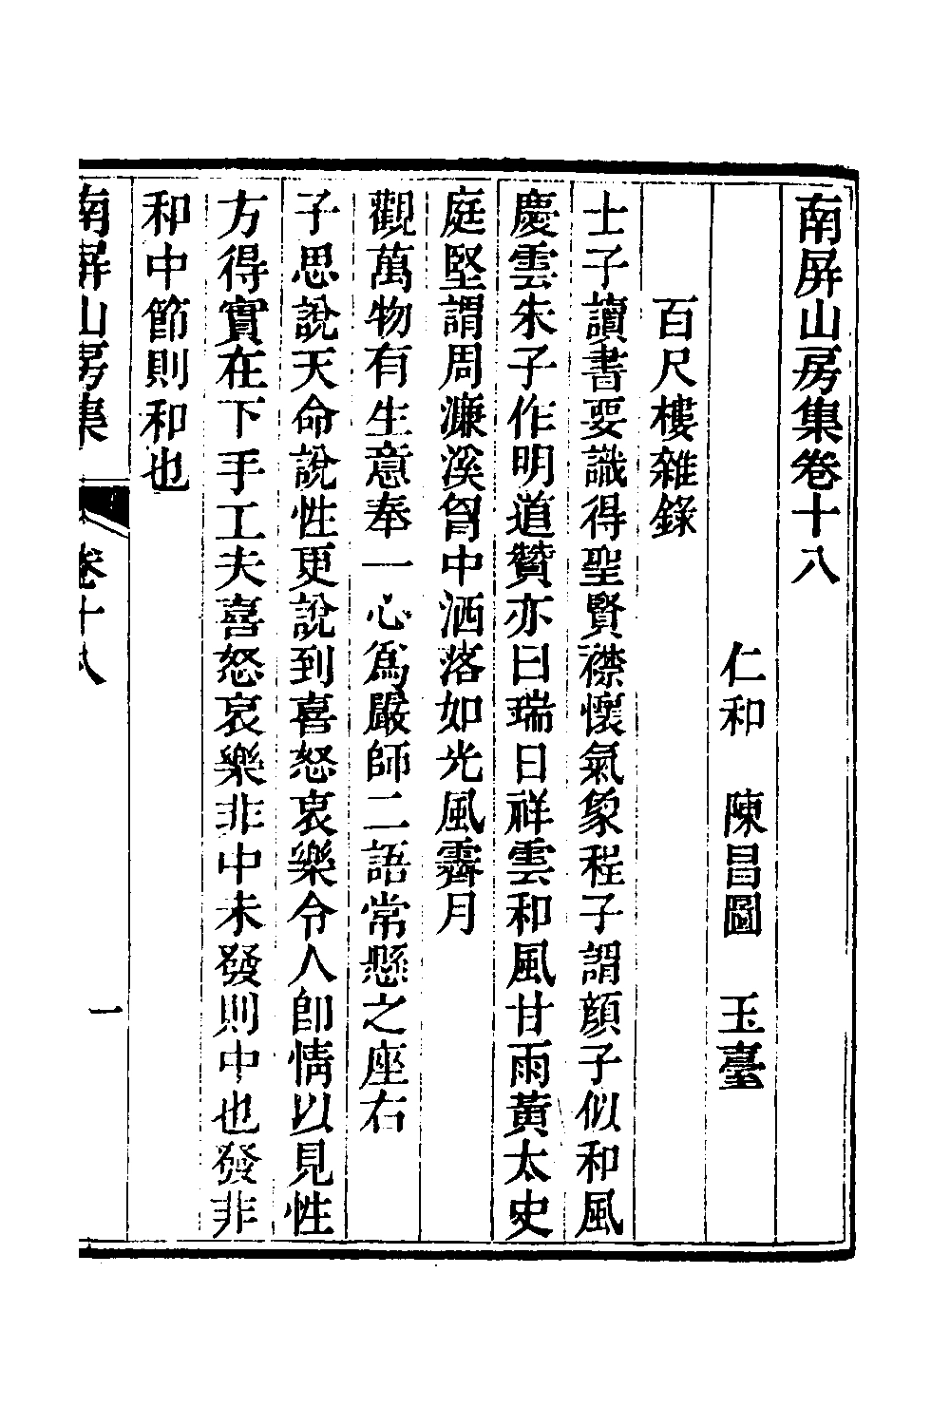 南屏山房集卷十八
仁和　陳昌圖　玉臺
百尺樓雜錄
士子讀書要識得聖賢襟懷氣象程子謂顏子似和風
慶雲朱子作明道贊亦曰瑞日祥雲和風甘雨黃太史
庭堅謂周濂溪胷中洒落如光風霽月
觀萬物有生意奉一心爲嚴師二語常懸之座右
子思說天命說性更說到喜怒哀樂令人卽情以見性
方得實在下手工夫喜怒哀樂非中未發則中也發非
和中節則和也
南屏山房集
卷十八
一